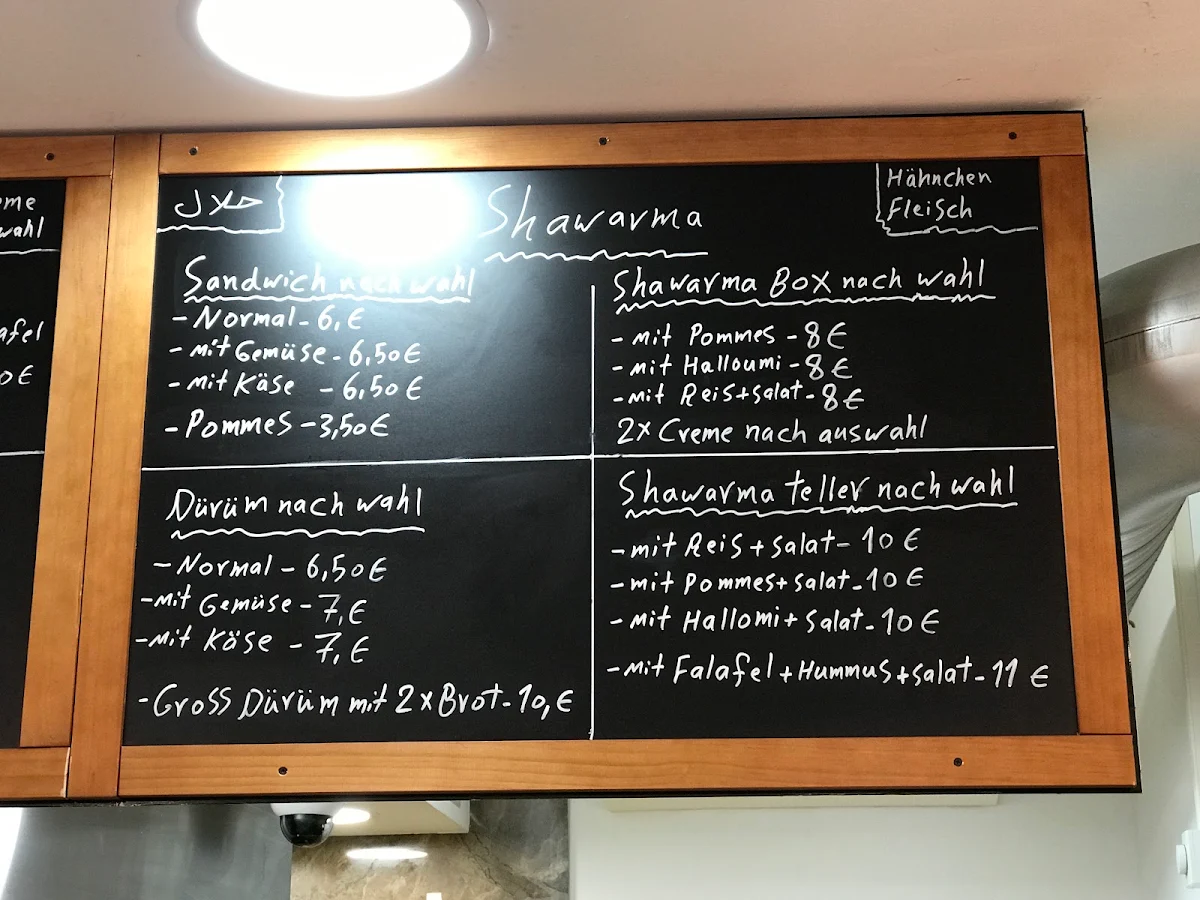 eme
wahl
afel
0€
حلال
Shawarma
Hähnchen
Fleisch
Sandwich nach wahl
- Normal - 6,€
- mit Gemüse - 6,50€
- mit Käse - 6,50€
- Pommes - 3,50€
Shawarma Box nach wahl
- mit Pommes - 8€
- mit Halloumi - 8€
- mit Reis+salat - 8€
2x Creme nach auswahl
Dürüm nach wahl
- Normal - 6,50€
- mit Gemüse - 7,€
- mit Käse - 7,€
- Gross Dürüm mit 2x Brot - 10,€
Shawarma teller nach wahl
- mit Reis + salat - 10€
- mit Pommes + salat - 10€
- mit Hallomi + salat - 10€
- mit Falafel + Hummus + salat - 11€